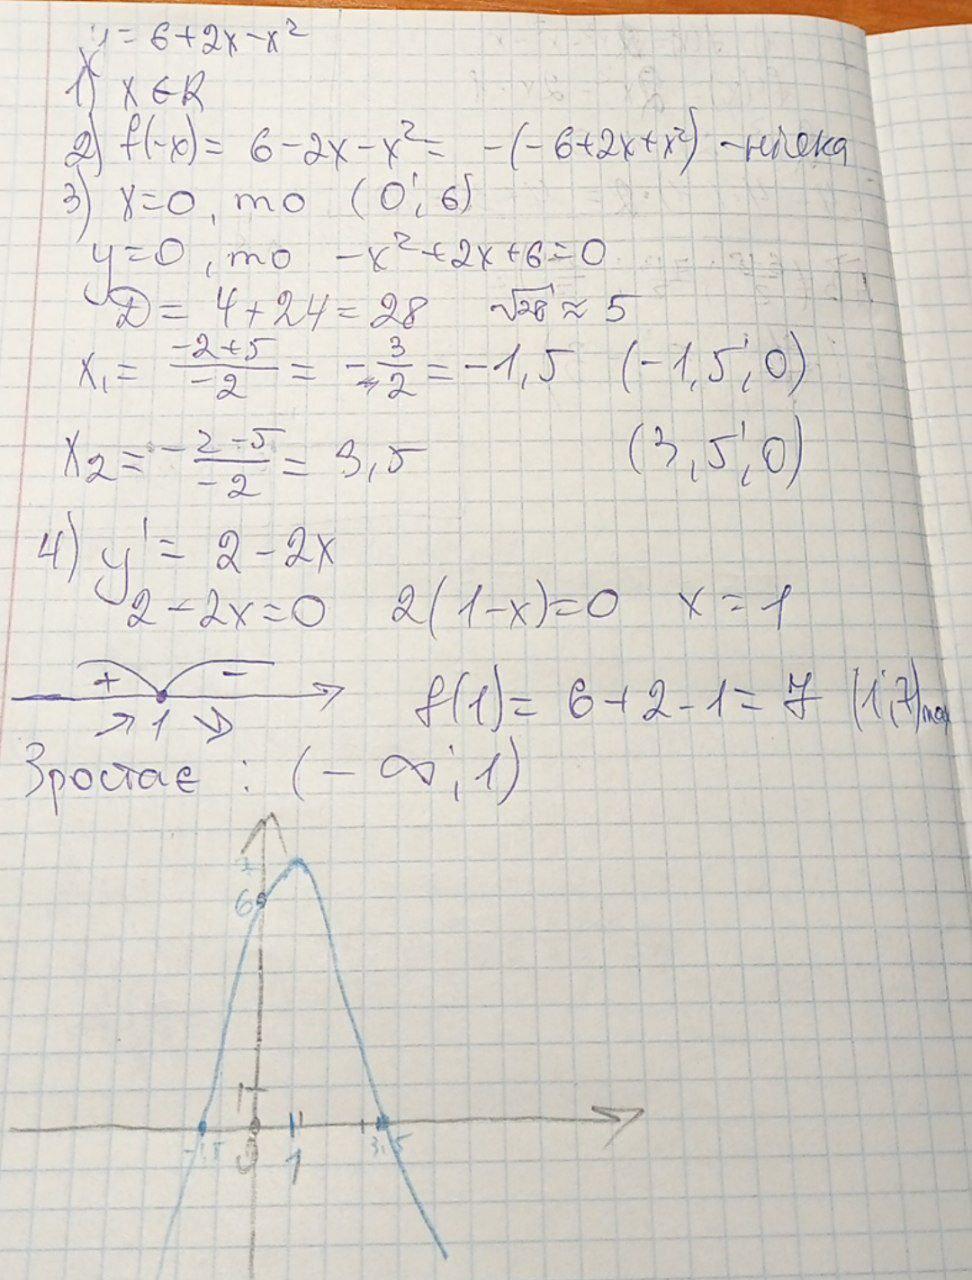 y = 6+2x-x²
1) x ∈ R
2) f(-x) = 6-2x-x² = -(-6+2x+x²) - ніяка
3) x=0, то (0; 6)
y=0, то -x²+2x+6=0
D = 4+24 = 28 √28 ≈ 5
x₁ = (-2+5)/(-2) = -3/2 = -1,5 (-1,5; 0)
x₂ = (-2-5)/(-2) = 3,5 (3,5; 0)
4) y' = 2-2x
2-2x=0 2(1-x)=0 x=1
+ -
↗ 1 ↘ f(1) = 6+2-1 = 7 (1; 7)max
Зростає : (-∞; 1)
7
6
1
-1,5 0 1 3,5